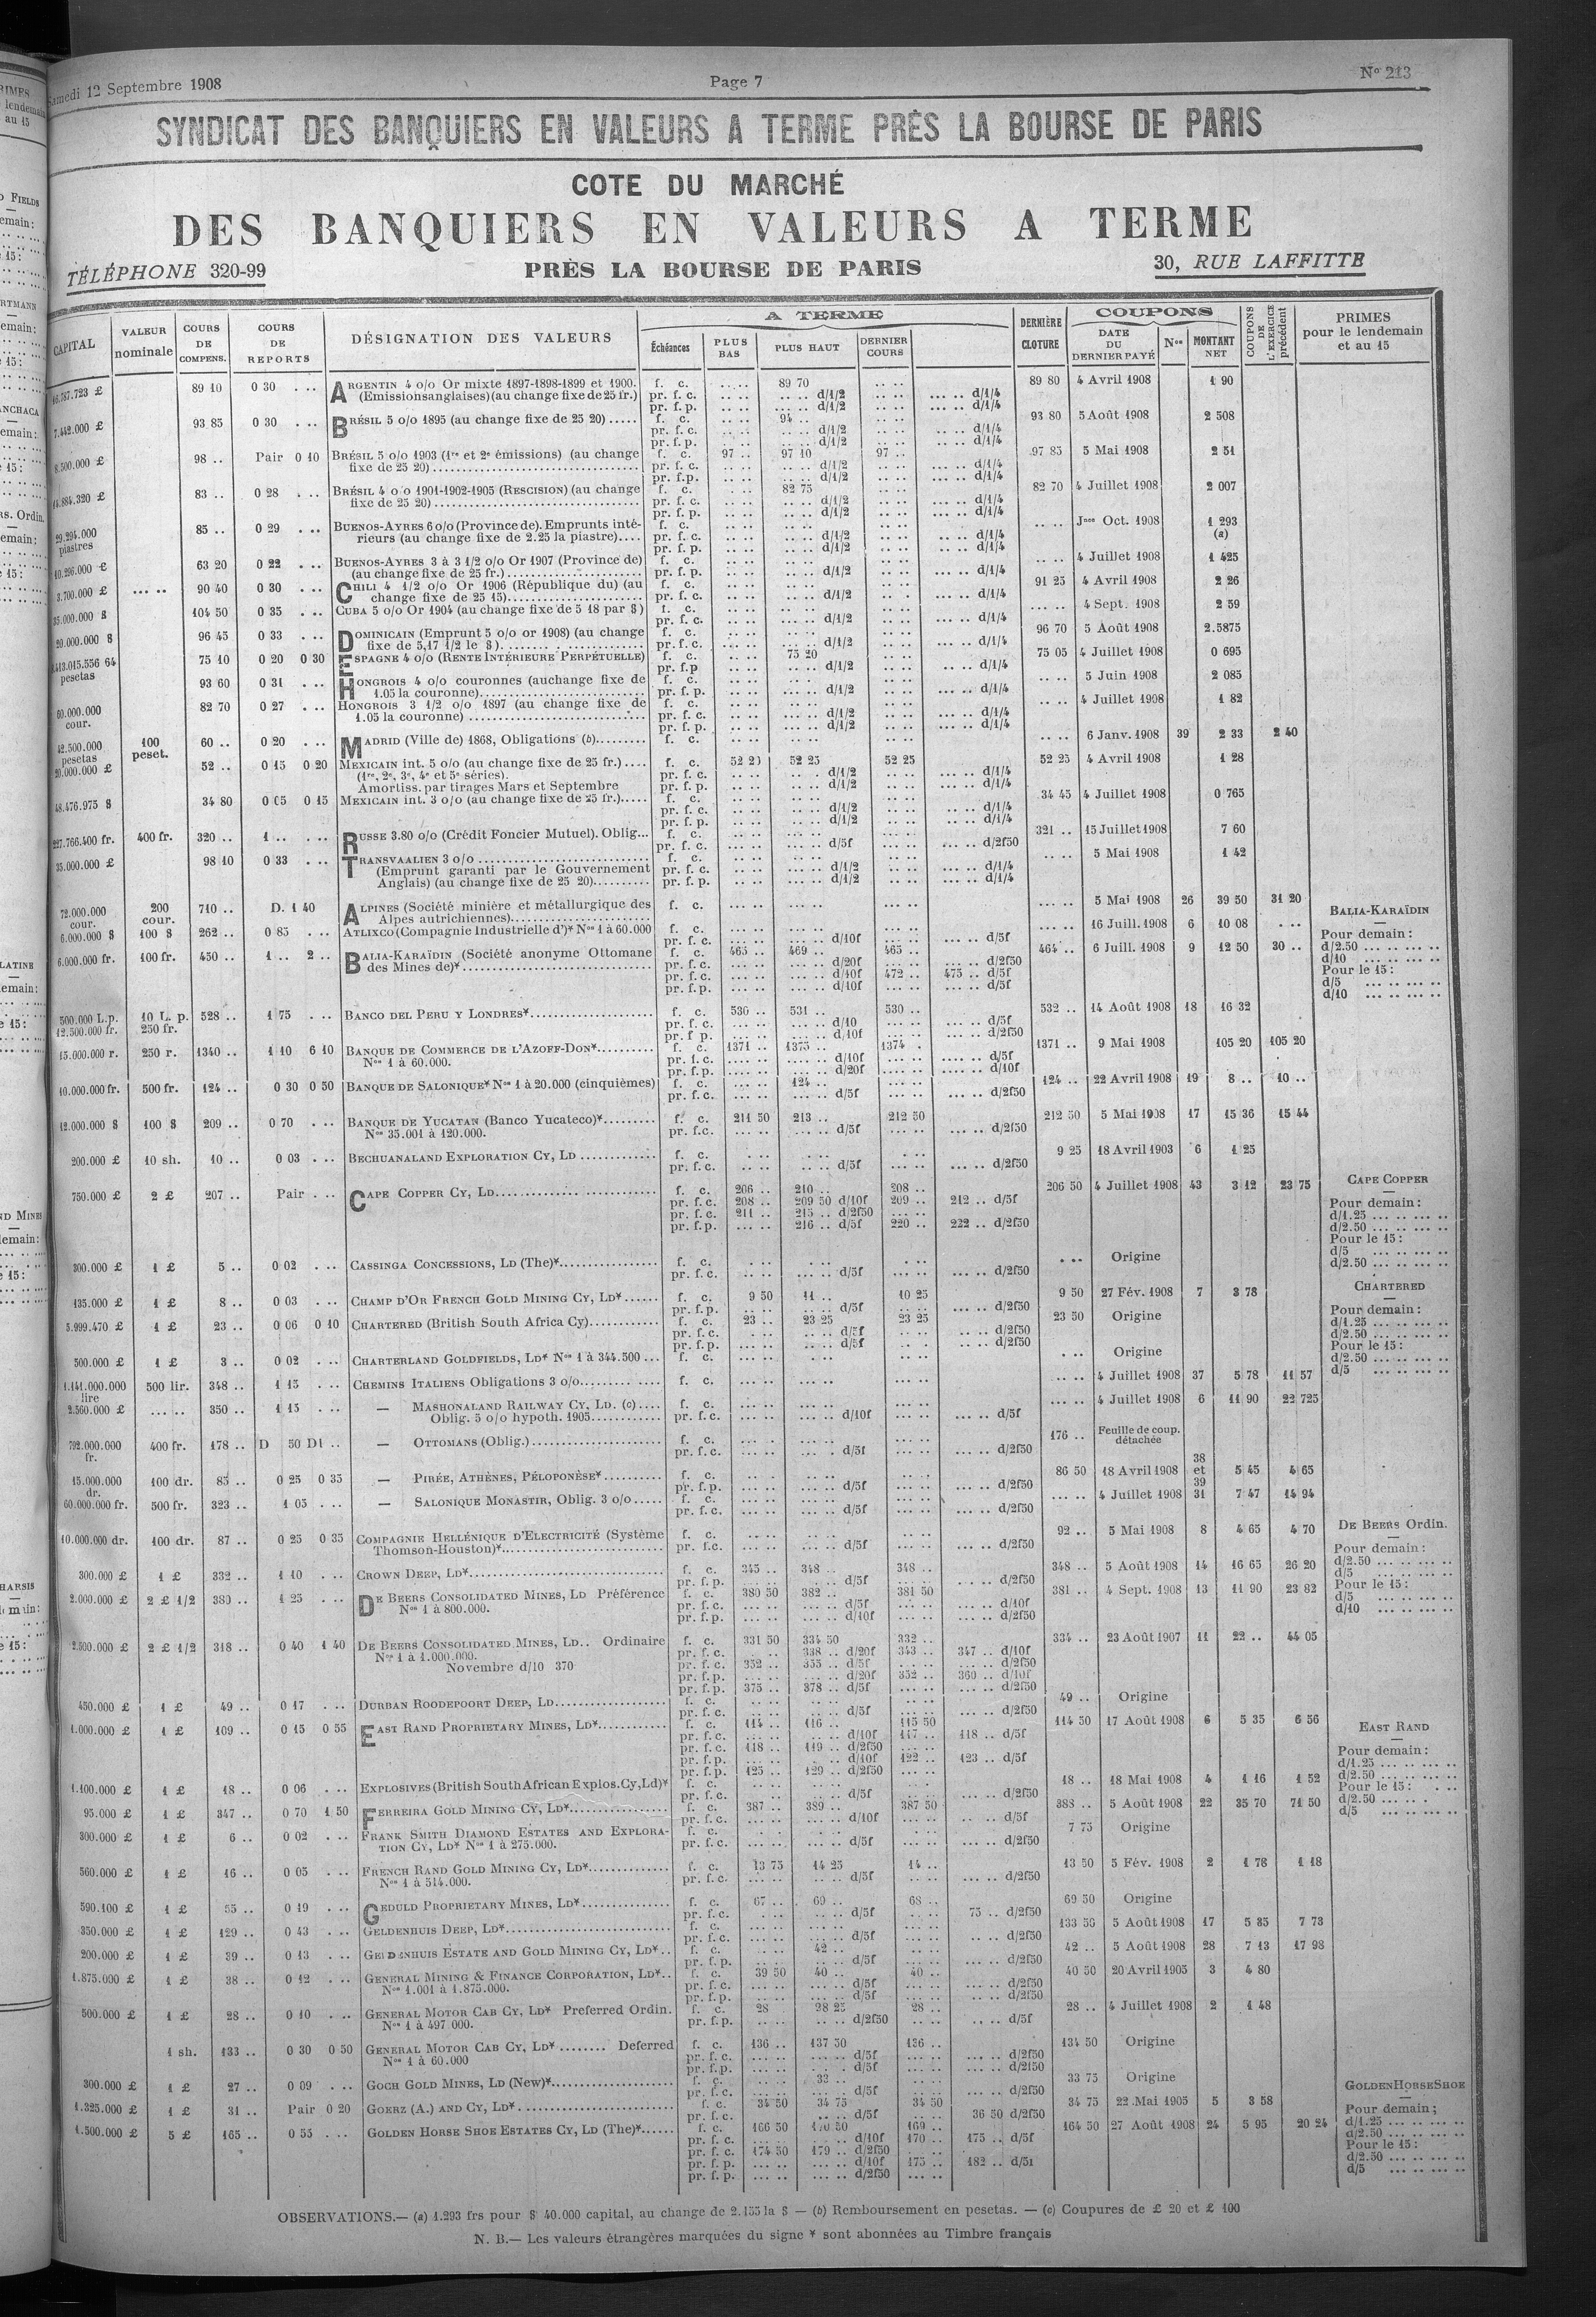 Samedi 12 Septembre 1908
Page 7
No 213
SYNDICAT DES BANQUIERS EN VALEURS A TERME PRÈS LA BOURSE DE PARIS
COTE DU MARCHÉ
DES BANQUIERS EN VALEURS A TERME
TÉLÉPHONE 320-99
PRÈS LA BOURSE DE PARIS
30, RUE LAFFITTE
CAPITAL
VALEUR nominale
COURS DE COMPENS.
COURS DE REPORTS
DÉSIGNATION DES VALEURS
A TERME
Échéances
PLUS BAS
PLUS HAUT
DERNIER COURS
DERNIÈRE CLOTURE
COUPONS
DATE DU DERNIER PAYÉ
Nos
MONTANT NET
COUPONS DE L'EXERCICE précédent
PRIMES pour le lendemain et au 15
89 10 0 30 ... ARGENTIN 4 o/o Or mixte 1897-1898-1899 et 1900. f. c. 89 70 89 80 4 Avril 1908 1 90
(Emissions anglaises) (au change fixe de 25 fr.) pr. f. c. d/1/2 d/1/4
pr. f. p. d/1/2 d/1/4
7.442.000 £ 93 85 0 30 ... BRÉSIL 5 o/o 1895 (au change fixe de 25 20) f. c. 94 .. 93 80 5 Août 1908 2 508
8.500.000 £ 98 .. Pair 0 10 BRÉSIL 5 o/o 1903 (1re et 2e émissions) (au change f. c. 97 .. 97 10 97 .. 97 85 5 Mai 1908 2 51
fixe de 25 20)
83 .. 0 28 ... BRÉSIL 4 o/o 1901-1902-1905 (RESCISION) (au change f. c. 82 75 82 70 4 Juillet 1908 2 007
fixe de 25 20)
29.294.000 piastres 85 .. 0 29 ... BUENOS-AYRES 6 o/o (Province de). Emprunts inté- f. c. Jnce Oct. 1908 1 293 (a)
rieurs (au change fixe de 2.25 la piastre)
10.296.000 £ 63 20 0 22 ... BUENOS-AYRES 3 à 3 1/2 o/o Or 1907 (Province de) f. c. 4 Juillet 1908 1 425
(au change fixe de 25 fr.)
3.700.000 £ 90 40 0 30 ... CHILI 4 1/2 o/o Or 1906 (République du) (au f. c. 91 25 4 Avril 1908 2 26
change fixe de 25 15)
35.000.000 $ 104 50 0 35 ... CUBA 5 o/o Or 1904 (au change fixe de 5 18 par $) f. c. 4 Sept. 1908 2 59
20.000.000 $ 96 45 0 33 ... DOMINICAIN (Emprunt 5 o/o or 1908) (au change f. c. 96 70 5 Août 1908 2.5875
fixe de 5,17 1/2 le $)
pesetas 75 10 0 20 0 30 ESPAGNE 4 o/o (RENTE INTÉRIEURE PERPÉTUELLE) f. c. 75 20 75 05 4 Juillet 1908 0 695
93 60 0 31 ... HONGROIS 4 o/o couronnes (au change fixe de f. c. 5 Juin 1908 2 085
1.05 la couronne)
60.000.000 cour. 82 70 0 27 ... HONGROIS 3 1/2 o/o 1897 (au change fixe de f. c. 4 Juillet 1908 1 82
1.05 la couronne)
42.500.000 pesetas 100 peset. 60 .. 0 20 ... MADRID (Ville de) 1868, Obligations (b) f. c. 6 Janv. 1908 39 2 33 2 40
20.000.000 £ 52 .. 0 15 0 20 MEXICAIN int. 5 o/o (au change fixe de 25 fr.) f. c. 52 20 52 25 52 25 52 25 4 Avril 1908 1 28
(1re, 2e, 3e, 4e et 5e séries).
Amortiss. par tirages Mars et Septembre
48.476.975 $ 34 80 0 05 0 15 MEXICAIN int. 3 o/o (au change fixe de 25 fr.) f. c. 34 45 4 Juillet 1908 0 765
227.766.400 fr. 400 fr. 320 .. 1 .. ... RUSSE 3.80 o/o (Crédit Foncier Mutuel). Oblig... f. c. 321 .. 15 Juillet 1908 7 60
pr. f. c. d/5f d/2f50
35.000.000 £ 98 10 0 33 ... TRANSVAALIEN 3 o/o f. c. 5 Mai 1908 1 42
(Emprunt garanti par le Gouvernement
Anglais) (au change fixe de 25 20)
72.000.000 cour. 200 cour. 710 .. D. 1 40 ALPINES (Société minière et métallurgique des f. c. 5 Mai 1908 26 39 50 31 20
Alpes autrichiennes)
6.000.000 $ 100 $ 262 .. 0 85 ... ATLIXCO (Compagnie Industrielle d')* Nos 1 à 60.000 f. c. 16 Juill. 1908 6 10 08
pr. f. c. d/10f d/5f
6.000.000 fr. 100 fr. 450 .. 1 .. 2 .. BALIA-KARAÏDIN (Société anonyme Ottomane f. c. 465 .. 469 .. 465 .. 464 .. 6 Juill. 1908 9 12 50 30 ..
des Mines de)* pr. f. c. d/20f d/2f50
pr. f. c. d/10f 472 .. 475 .. d/5f
pr. f. p. d/10f d/5f
BALIA-KARAÏDIN
Pour demain :
d/2.50
d/10
Pour le 15 :
d/5
d/10
500.000 L.p. 10 L. p. 528 .. 1 75 ... BANCO DEL PERU Y LONDRES* f. c. 530 .. 531 .. 530 .. 532 .. 14 Août 1908 18 16 32
12.500.000 fr. 250 fr.
15.000.000 r. 250 r. 1340 .. 1 10 6 10 BANQUE DE COMMERCE DE L'AZOFF-DON* f. c. 1371 .. 1375 .. 1374 . 1371 .. 9 Mai 1908 105 20 105 20
Nos 1 à 60.000.
10.000.000 fr. 500 fr. 124 .. 0 30 0 50 BANQUE DE SALONIQUE* Nos 1 à 20.000 (cinquièmes) f. c. 124 .. 124 .. 22 Avril 1908 19 8 .. 10 ..
12.000.000 $ 100 $ 209 .. 0 70 ... BANQUE DE YUCATAN (Banco Yucateco)* f. c. 211 50 213 .. 212 50 212 50 5 Mai 1908 17 15 36 15 44
Nos 35.001 à 120.000.
200.000 £ 10 sh. 10 .. 0 03 ... BECHUANALAND EXPLORATION CY, LD f. c. 9 25 18 Avril 1903 6 1 25
750.000 £ 2 £ 207 .. Pair ... CAPE COPPER CY, LD f. c. 206 .. 210 .. 208 .. 206 50 4 Juillet 1908 43 3 12 23 75
pr. f. c. 208 .. 209 50 d/10f 209 .. 212 .. d/5f
pr. f. c. 211 .. 215 .. d/2f50
pr. f. p. 216 .. d/5f 220 .. 222 .. d/2f50
CAPE COPPER
Pour demain :
d/1.25
d/2.50
Pour le 15 :
d/5
d/2.50
300.000 £ 1 £ 5 .. 0 02 ... CASSINGA CONCESSIONS, LD (The)* f. c. Origine
135.000 £ 1 £ 8 .. 0 03 ... CHAMP D'OR FRENCH GOLD MINING CY, LD* f. c. 9 50 11 .. 10 25 9 50 27 Fév. 1908 7 3 78
5.999.470 £ 1 £ 23 .. 0 06 0 10 CHARTERED (British South Africa Cy) f. c. 23 .. 23 25 23 25 23 50 Origine
CHARTERED
Pour demain :
d/1.25
d/2.50
Pour le 15 :
d/2.50
d/5
500.000 £ 1 £ 3 .. 0 02 ... CHARTERLAND GOLDFIELDS, LD* Nos 1 à 344.500 f. c. Origine
1.141.000.000 lire 500 lir. 348 .. 1 15 ... CHEMINS ITALIENS Obligations 3 o/o f. c. 4 Juillet 1908 37 5 78 11 57
2.560.000 £ 350 .. 1 15 ... — MASHONALAND RAILWAY CY, LD. (c) f. c. 4 Juillet 1908 6 11 90 22 725
Oblig. 5 o/o hypoth. 1905 pr. f. c. d/10f d/5f
792.000.000 fr. 400 fr. 178 .. D 50 D1 .. — OTTOMANS (Oblig.) f. c. 176 .. Feuille de coup. détachée
15.000.000 dr. 100 dr. 85 .. 0 25 0 35 — PIRÉE, ATHÈNES, PÉLOPONÈSE* f. c. 86 50 18 Avril 1908 38 et 39 5 45 4 65
60.000.000 fr. 500 fr. 323 .. 1 05 ... — SALONIQUE MONASTIR, Oblig. 3 o/o f. c. 4 Juillet 1908 31 7 47 14 94
10.000.000 dr. 100 dr. 87 .. 0 25 0 35 COMPAGNIE HELLÉNIQUE D'ELECTRICITÉ (Système f. c. 92 .. 5 Mai 1908 8 4 65 4 70
Thomson-Houston)* pr. f.c. d/5f d/2f50
300.000 £ 1 £ 332 .. 1 10 ... CROWN DEEP, LD* f. c. 345 .. 348 .. 348 .. 348 .. 5 Août 1908 14 16 65 26 20
2.000.000 £ 2 £ 1/2 380 .. 1 25 ... DE BEERS CONSOLIDATED MINES, LD Préférence f. c. 380 50 382 .. 381 50 381 .. 4 Sept. 1908 13 11 90 23 82
Nos 1 à 800.000.
DE BEERS Ordin.
Pour demain :
d/2.50
d/5
Pour le 15 :
d/5
d/10
2.500.000 £ 2 £ 1/2 318 .. 0 40 1 40 DE BEERS CONSOLIDATED MINES, LD.. Ordinaire f. c. 331 50 334 50 332 .. 334 .. 23 Août 1907 11 22 .. 44 05
Nos 1 à 1.000.000. pr. f. c. 338 .. d/20f 343 .. 347 .. d/10f
Novembre d/10 370 pr. f. c. 352 .. 355 .. d/5f d/2f50
pr. f. p. d/20f 352 .. 360 .. d/10f
pr. f. p. 375 .. 378 .. d/5f d/2f50
450.000 £ 1 £ 49 .. 0 17 ... DURBAN ROODEPOORT DEEP, LD f. c. 49 .. Origine
1.000.000 £ 1 £ 109 .. 0 15 0 55 EAST RAND PROPRIETARY MINES, LD* f. c. 114 .. 116 .. 115 50 114 50 17 Août 1908 6 5 35 6 56
pr. f. c. d/10f 117 .. 118 .. d/5f
pr. f. c. 118 .. 119 .. d/2f50
pr. f. p. d/10f 122 .. 123 .. d/5f
pr. f. p. 125 .. 129 .. d/2f50
EAST RAND
Pour demain :
d/1.25
d/2.50
Pour le 15 :
d/2.50
d/5
1.100.000 £ 1 £ 18 .. 0 06 ... EXPLOSIVES (British South African Explos. Cy, Ld)* f. c. 18 .. 18 Mai 1908 4 1 16 1 52
95.000 £ 1 £ 347 .. 0 70 1 50 FERREIRA GOLD MINING CY, LD* f. c. 387 .. 389 .. 387 50 388 .. 5 Août 1908 22 35 70 71 50
300.000 £ 1 £ 6 .. 0 02 ... FRANK SMITH DIAMOND ESTATES AND EXPLORA- f. c. 7 75 Origine
TION CY, LD* Nos 1 à 275.000.
560.000 £ 1 £ 16 .. 0 05 ... FRENCH RAND GOLD MINING CY, LD* f. c. 13 75 14 25 14 .. 13 50 5 Fév. 1908 2 1 78 1 18
Nos 1 à 514.000.
590.100 £ 1 £ 55 .. 0 19 ... GEDULD PROPRIETARY MINES, LD* f. c. 67 .. 69 .. 68 .. 69 50 Origine
pr. f. c. d/5f 75 .. d/2f50
350.000 £ 1 £ 129 .. 0 43 ... GELDENHUIS DEEP, LD* f. c. 133 50 5 Août 1908 17 5 85 7 73
200.000 £ 1 £ 39 .. 0 13 ... GELDENHUIS ESTATE AND GOLD MINING CY, LD* f. c. 42 .. 42 .. 5 Août 1908 28 7 13 17 98
1.875.000 £ 1 £ 38 .. 0 12 ... GENERAL MINING & FINANCE CORPORATION, LD* f. c. 39 50 40 .. 40 .. 40 50 20 Avril 1905 3 4 80
Nos 1.001 à 1.875.000.
500.000 £ 1 £ 28 .. 0 10 ... GENERAL MOTOR CAB CY, LD* Preferred Ordin. f. c. 28 98 25 28 .. 28 .. 4 Juillet 1908 2 1 48
Nos 1 à 497 000. pr. f. p. d/2f50 d/5f
1 sh. 133 .. 0 30 0 50 GENERAL MOTOR CAB CY, LD* Deferred f. c. 136 .. 137 50 136 .. 134 50 Origine
Nos 1 à 60.000
300.000 £ 1 £ 27 .. 0 09 ... GOCH GOLD MINES, LD (New)* f. c. 33 .. 33 75 Origine
1.325.000 £ 1 £ 31 .. Pair 0 20 GOERZ (A.) AND CY, LD* f. c. 34 50 34 75 34 50 34 75 22 Mai 1905 5 3 58
pr. f. c. d/5f 36 50 d/2f50
1.500.000 £ 5 £ 165 .. 0 55 ... GOLDEN HORSE SHOE ESTATES CY, LD (The)* f. c. 166 50 170 50 169 .. 164 50 27 Août 1908 24 5 95 20 24
pr. f. c. d/10f 170 .. 175 .. d/5f
pr. f. c. 174 50 179 .. d/2f50
pr. f. p. d/10f 175 .. 182 .. d/5f
pr. f. p. d/2f50
GOLDEN HORSE SHOE
Pour demain ;
d/1.25
d/2.50
Pour le 15 :
d/2.50
d/5
OBSERVATIONS.— (a) 1.293 frs pour $ 40.000 capital, au change de 2.155 la $ — (b) Remboursement en pesetas. — (c) Coupures de £ 20 et £ 100
N. B.— Les valeurs étrangères marquées du signe * sont abonnées au Timbre français